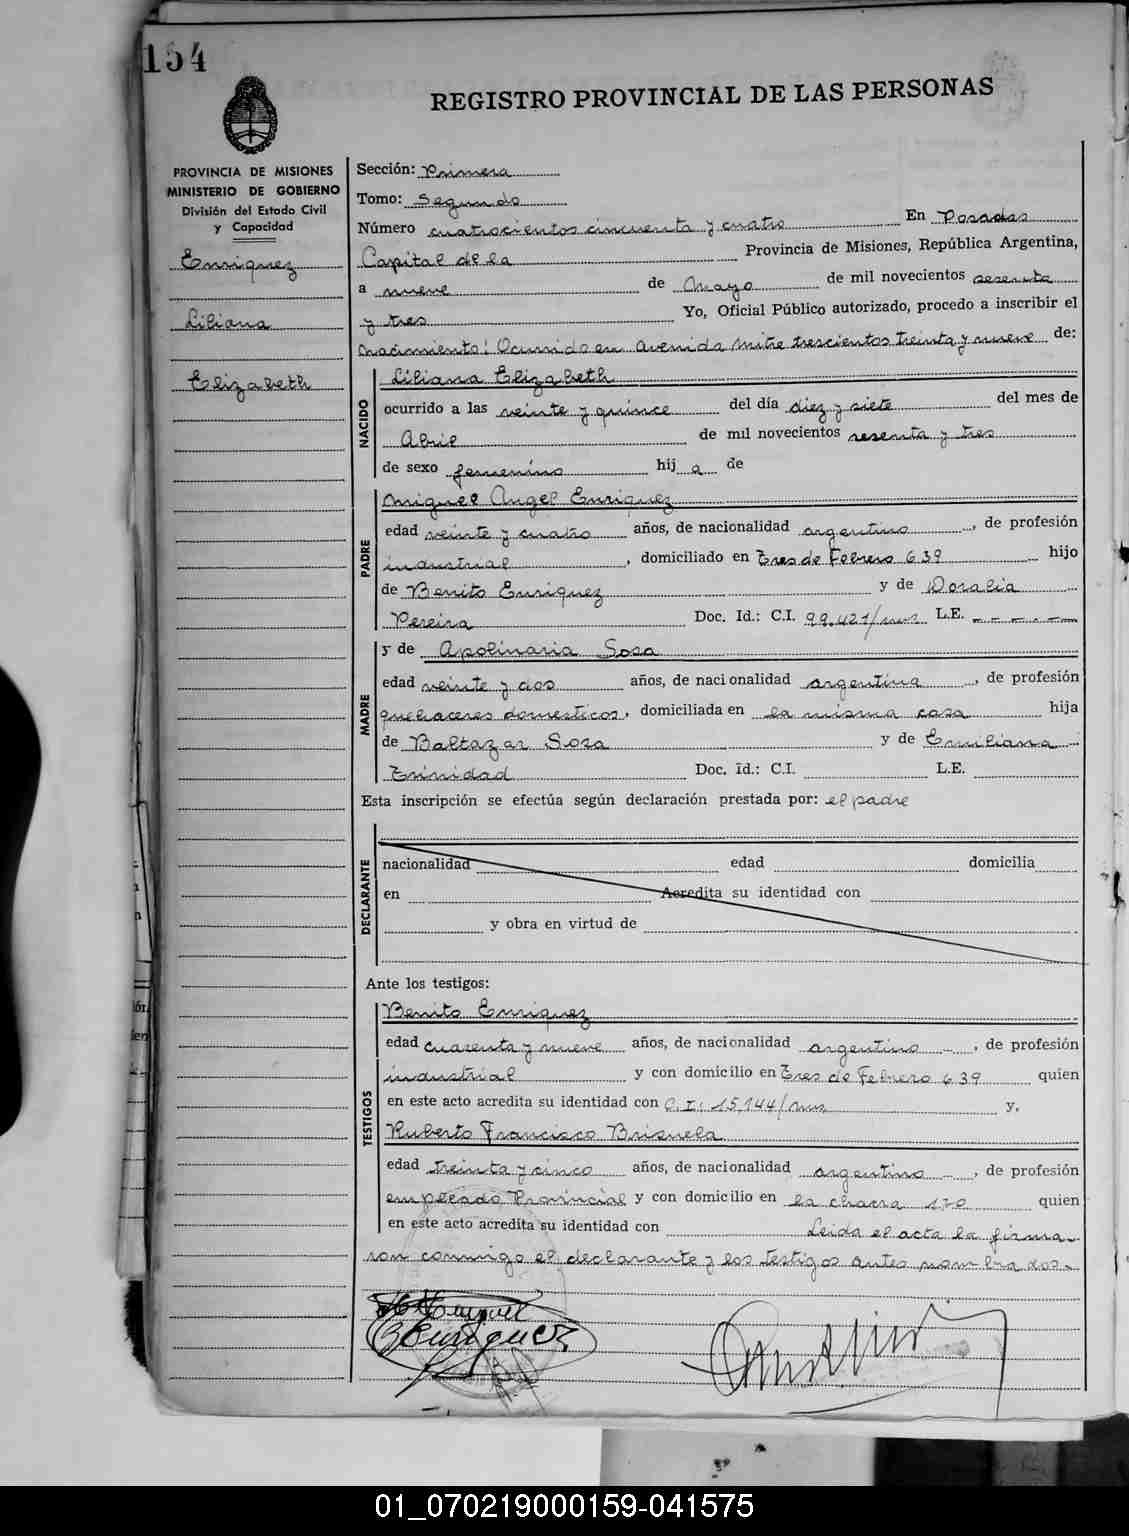 154
REGISTRO PROVINCIAL DE LAS PERSONAS
PROVINCIA DE MISIONES
MINISTERIO DE GOBIERNO
División del Estado Civil
y Capacidad
Enriquez
Liliana
Elizabeth
Sección: Primera
Tomo: Segundo
Número cuatrocientos cincuenta y cuatro En Posadas
Capital de la Provincia de Misiones, República Argentina,
a nueve de Mayo de mil novecientos sesenta
y tres Yo, Oficial Público autorizado, procedo a inscribir el
Nacimiento: Ocurrido en Avenida Mitre trescientos treinta y nueve de:
NACIDO
Liliana Elizabeth
ocurrido a las veinte y quince del día diez y siete del mes de
Abril de mil novecientos sesenta y tres
de sexo femenino hij a de
PADRE
Miguel Angel Enriquez
edad veinte y cuatro años, de nacionalidad argentino, de profesión
industrial, domiciliado en Tres de Febrero 639 hijo
de Benito Enriquez y de Doralia
Pereira Doc. Id.: C.I. 99.421/mns L.E. - - - - -
MADRE
y de Apolinaria Sosa
edad veinte y dos años, de nacionalidad argentina, de profesión
quehaceres domesticos, domiciliada en la misma casa hija
de Baltazar Sosa y de Emiliana
Trinidad Doc. Id.: C.I. L.E.
Esta inscripción se efectúa según declaración prestada por: el padre
DECLARANTE
nacionalidad edad domicilia
en Acredita su identidad con
y obra en virtud de
Ante los testigos:
TESTIGOS
Benito Enriquez
edad cuarenta y nueve años, de nacionalidad argentino, de profesión
industrial y con domicilio en Tres de Febrero 639 quien
en este acto acredita su identidad con C.I. 15.144/mns y,
Ruberto Francisco Brisuela
edad treinta y cinco años, de nacionalidad argentino, de profesión
empleado Provincial y con domicilio en la chacra 170 quien
en este acto acredita su identidad con Leida el acta la firma
ron conmigo el declarante y los testigos antes nombrados.
BEnriquez
01_070219000159-041575